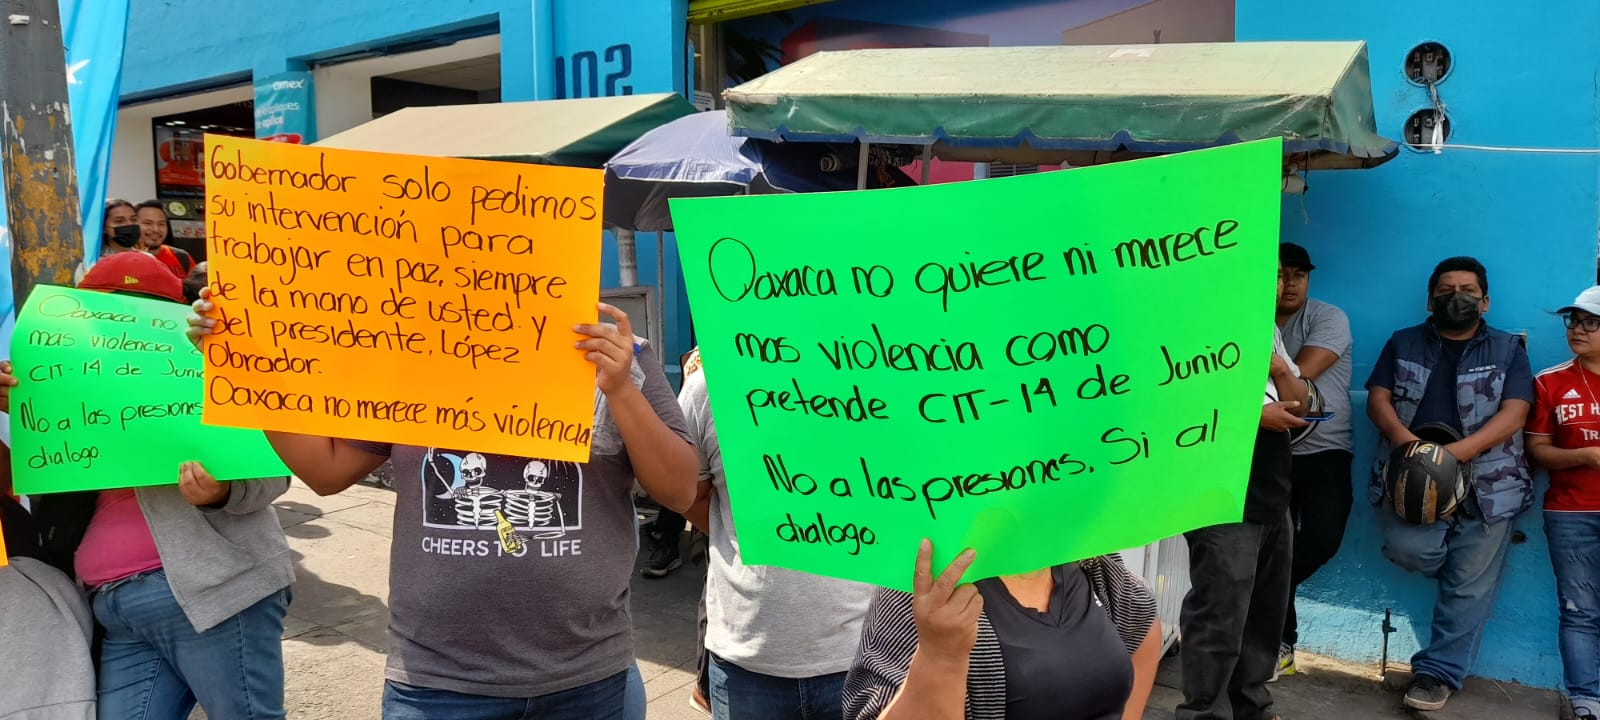 comex
102
Oaxaca no
más violencia
CIT-14 de Juni
No a las presiones
dialogo.
Gobernador solo pedimos
su intervención para
trabajar en paz, siempre
de la mano de usted y
del presidente, López
Obrador.
Oaxaca no merece más violencia
CHEERS TO LIFE
Oaxaca no quiere ni merece
mas violencia como
pretende CIT-14 de Junio
No a las presiones. Si al
dialogo.